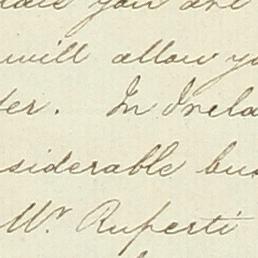 you are
will allow yo
der. In Irela
nsiderable bus
Mr Ruperti